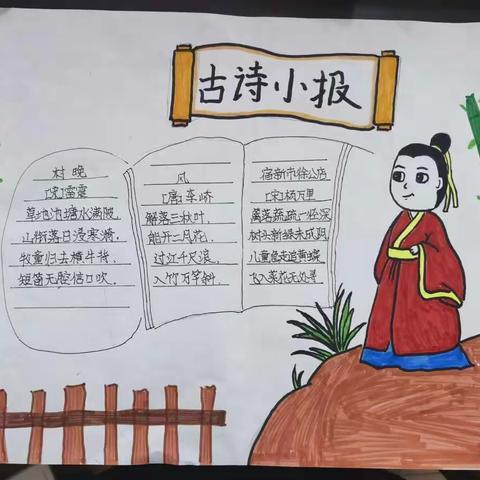 古诗小报
村晚
[宋]雷震
草地池塘水满陂,
山衔落日浸寒漪.
牧童归去横牛背,
短笛无腔信口吹.
风
[唐]李峤
解落三秋叶,
能开二月花.
过江千尺浪,
入竹万竿斜.
宿新市徐公店
[宋]杨万里
篱落疏疏一径深
树头新绿未成阴
儿童急走追黄蝶
飞入菜花无处寻